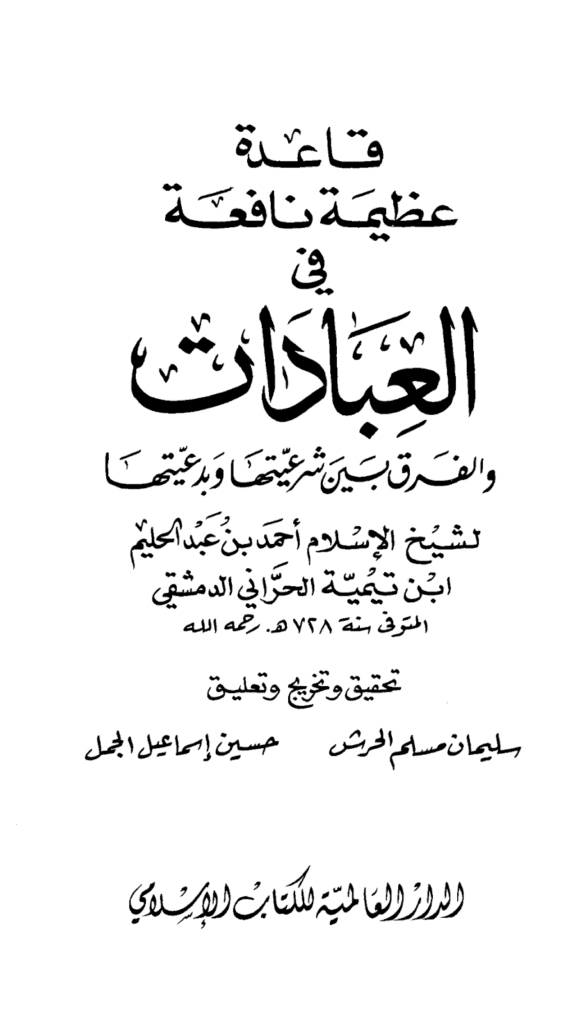 قاعدة
عظيمة نافعة
في
العِبَادَات
والفرق بين شرعيّتها وبدعيّتها
لشيخ الإسلام أحمد بن عبد الحليم
ابن تيميّة الحرَّاني الدمشقي
المتوفى سنة ٧٢٨هـ. رحمه الله
تحقيق وتخريج وتعليق
سليمان مسلم الحرش حسين إسماعيل الجمل
الدار العالميّة للكتاب الإسلامي